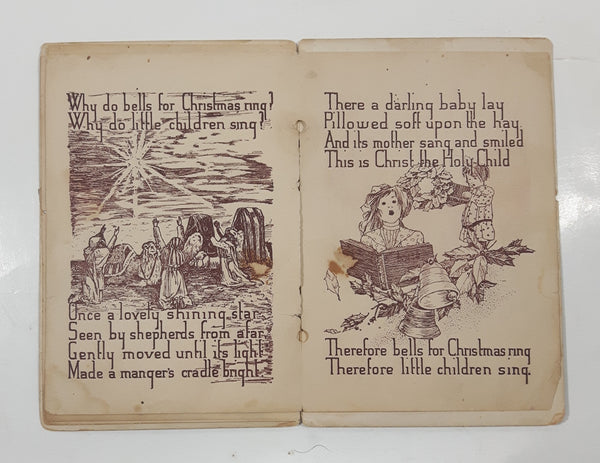 Why do bells for Christmas ring?
Why do little children sing?
Once a lovely shining star
Seen by shepherds from afar
Gently moved until its light
Made a manger's cradle bright.
There a darling baby lay
Pillowed soft upon the hay
And its mother sang and smiled
This is Christ the Holy Child
Therefore bells for Christmas ring
Therefore little children sing.